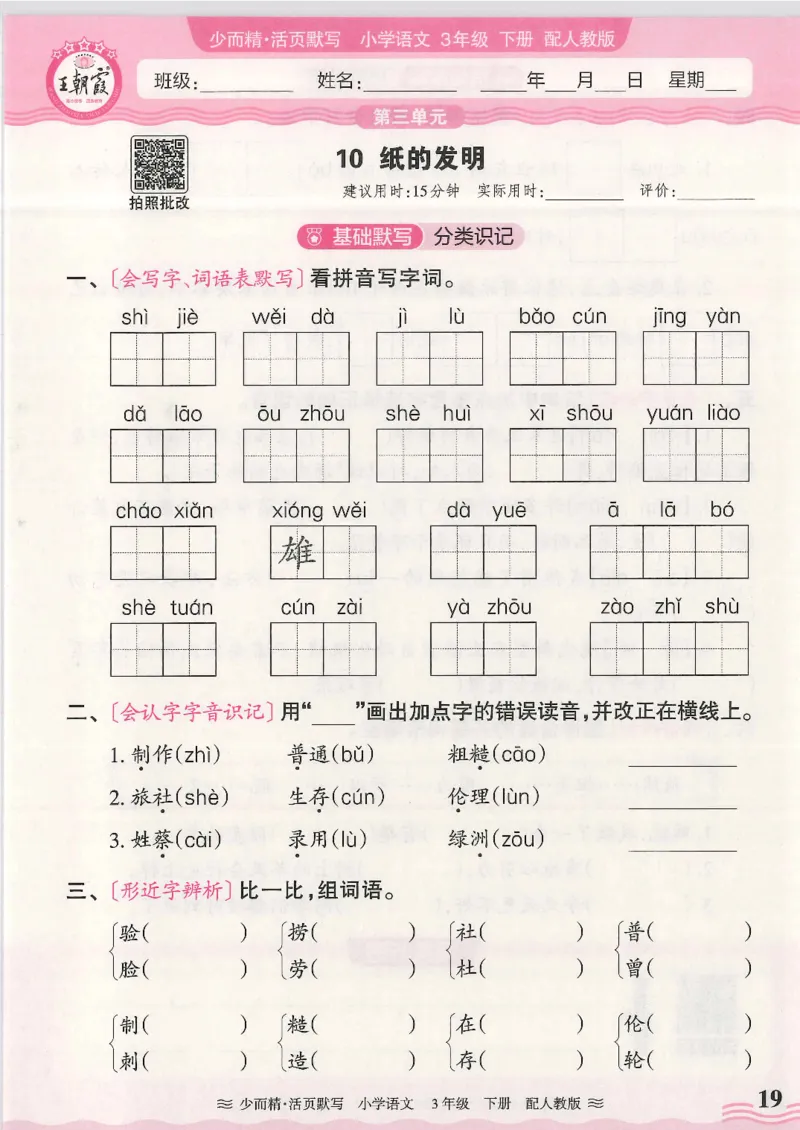 少而精·活页默写 小学语文 3年级 下册 配人教版
王朝霞
班级:________ 姓名:________ ____年___月___日 星期___
第三单元
10 纸的发明
拍照批改
建议用时:15分钟 实际用时:________ 评价:________
基础默写 分类识记
一、〔会写字、词语表默写〕看拼音写字词。
shì jiè wěi dà jì lù bǎo cún jīng yàn
dǎ lāo ōu zhōu shè huì xī shōu yuán liào
cháo xiǎn xióng wěi dà yuē ā lā bó
雄
shè tuán cún zài yà zhōu zào zhǐ shù
二、〔会认字字音识记〕用“____”画出加点字的错误读音,并改正在横线上。
1. 制作(zhì) 普通(bǔ) 粗糙(cāo) ________
2. 旅社(shè) 生存(cún) 伦理(lùn) ________
3. 姓蔡(cài) 录用(lù) 绿洲(zōu) ________
三、〔形近字辨析〕比一比,组词语。
验( ) 捞( ) 社( ) 普( )
脸( ) 劳( ) 杜( ) 曾( )
制( ) 糙( ) 在( ) 伦( )
刺( ) 造( ) 存( ) 轮( )
少而精·活页默写 小学语文 3年级 下册 配人教版
19